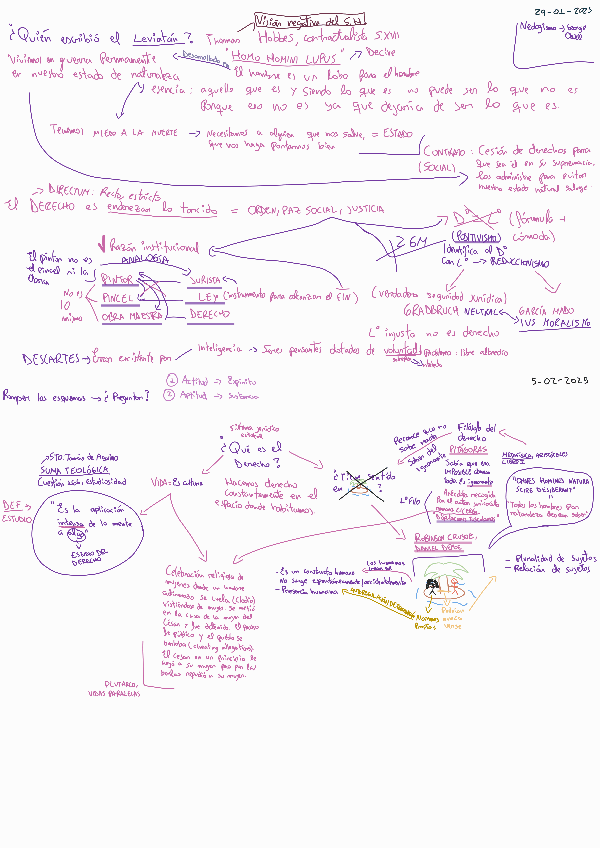 Visión negativa del S.H
29-01-2025
¿Quién escribió el Leviatán? Thomas Hobbes, contractualista S.XVII
Neologismo → George Orwell
Vivimos en guerra Permanente
en nuestro estado de naturaleza
Desarrollado en
"HOMO HOMINI LUPUS" → Decire
El hombre es un lobo para el hombre
esencia: aquello que es y siendo lo que es no puede ser lo que no es
Porque eso no es ya que dejaría de ser lo que es.
Tenemos MIEDO A LA MUERTE → Necesitamos a alguien que nos salve, = ESTADO
que nos haga portarnos bien
CONTRATO: Cesión de derechos para
(SOCIAL) que sea él en su supremacía
los administre para evitar
nuestro estado natural salvaje
→ DIRECTUM: Recto, estricto
El DERECHO es enderezar lo torcido = ORDEN, PAZ SOCIAL, JUSTICIA
D = L (fórmula + cómoda)
2 GM
(POSITIVISMO)
Identifica el Dº
con Lº → REDUCCIONISMO
Razón institucional
ANALOGÍA
El pintor no es
el pincel ni la
obra
No es
lo
mismo
PINTOR
JURISTA
PINCEL
LEY (instrumento para alcanzar el FIN)
OBRA MAESTRA
DERECHO
(verdadera seguridad jurídica)
GRADBRUCH NEUTRAL
GARCÍA MAÑO
IUS MORALISMO
Lº injusta no es derecho
DESCARTES → Error existente por
Inteligencia → Seres pensantes dotados de voluntad
Problema: libre albedrío
5-02-2025
① Actitud → Espíritu
Romper los esquemas → ¿Preguntar?
② Aptitud → sustancia
Sistema jurídico
estatal
¿Qué es el
Derecho?
STO. Tomás de Aquino
SUMA TEOLÓGICA
Cuestión 166, estudiosidad
VIDA: Es cultura
Hacemos derecho
constantemente en el
espacio donde habitamos.
¿Tiene sentido
en
Reconoce que no
sabe nada
Saben del
ignorante
Filósofo del
derecho
PITÁGORAS
Sabía que era
IMPOSIBLE conocer
todo. Es ignorante
METAFÍSICA, ARISTÓTELES
LIBRO I
"OMNES HOMINES NATURA
SCIRE DESIDERANT"
"Todos los hombres por
naturaleza desean saber"
DEF →
ESTUDIO
"Es la aplicación
intensa de la mente
a algo"
ESTADO DEL
DERECHO
Anécdota recogida
Por el autor
romano CICERÓN,
"Disputaciones Tusculanas"
ROBINSON CRUSOE,
DANIEL DEFOE
- Es un constructo humano
no surge espontáneamente/accidentalmente
- Presencia humana
- Pluralidad de sujetos
- Relación de sujetos
Normas
Podrían
nunca
verse
Celebración religiosa de
mujeres donde un hombre
se cuela (Clodio)
vistiéndose de mujer. Se metió
en la casa de la mujer del
César y fue detenido. El proceso
es público y el pueblo se
El César en un principio se
negó a su mujer pero por las
burlas repudió a su mujer.
PLUTARCO,
VIDAS PARALELAS